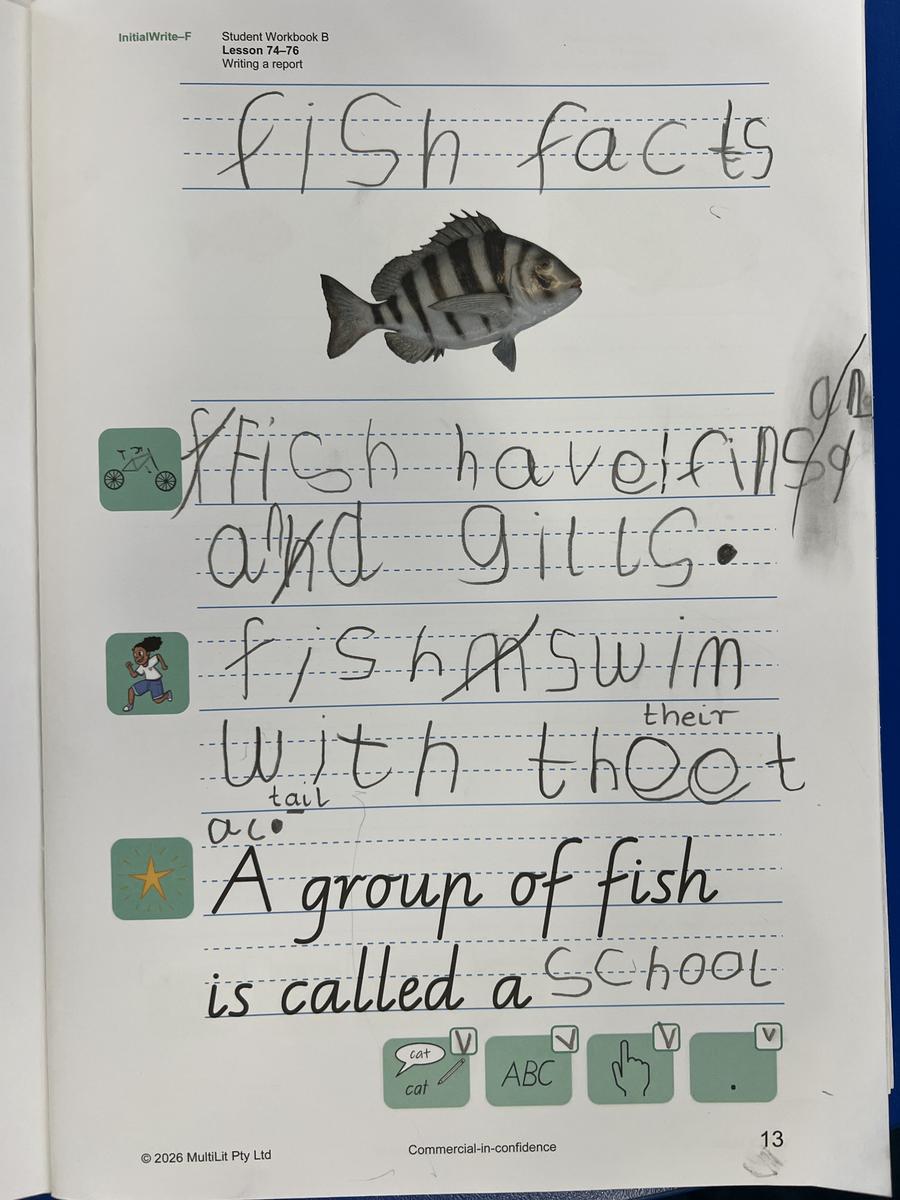 InitialWrite–F
Student Workbook B
Lesson 74–76
Writing a report
fish facts
Fish have fins
and gills.
fish swim
their
with thoot
tail
ac.
A group of fish
is called a school
cat
cat
ABC
.
© 2026 MultiLit Pty Ltd
Commercial-in-confidence
13